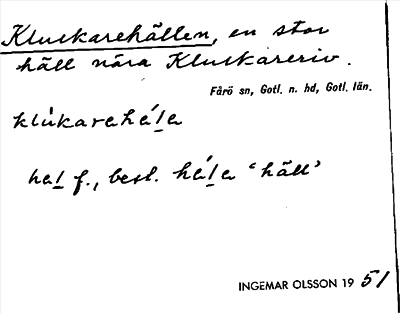 Kluckarehällen, en stor
häll nära Kluckareriv.
Fårö sn, Gotl. n. hd, Gotl. län.
klùkarehé̱la
he̱l f., best. hé̱la ‘häll’
INGEMAR OLSSON 19 51